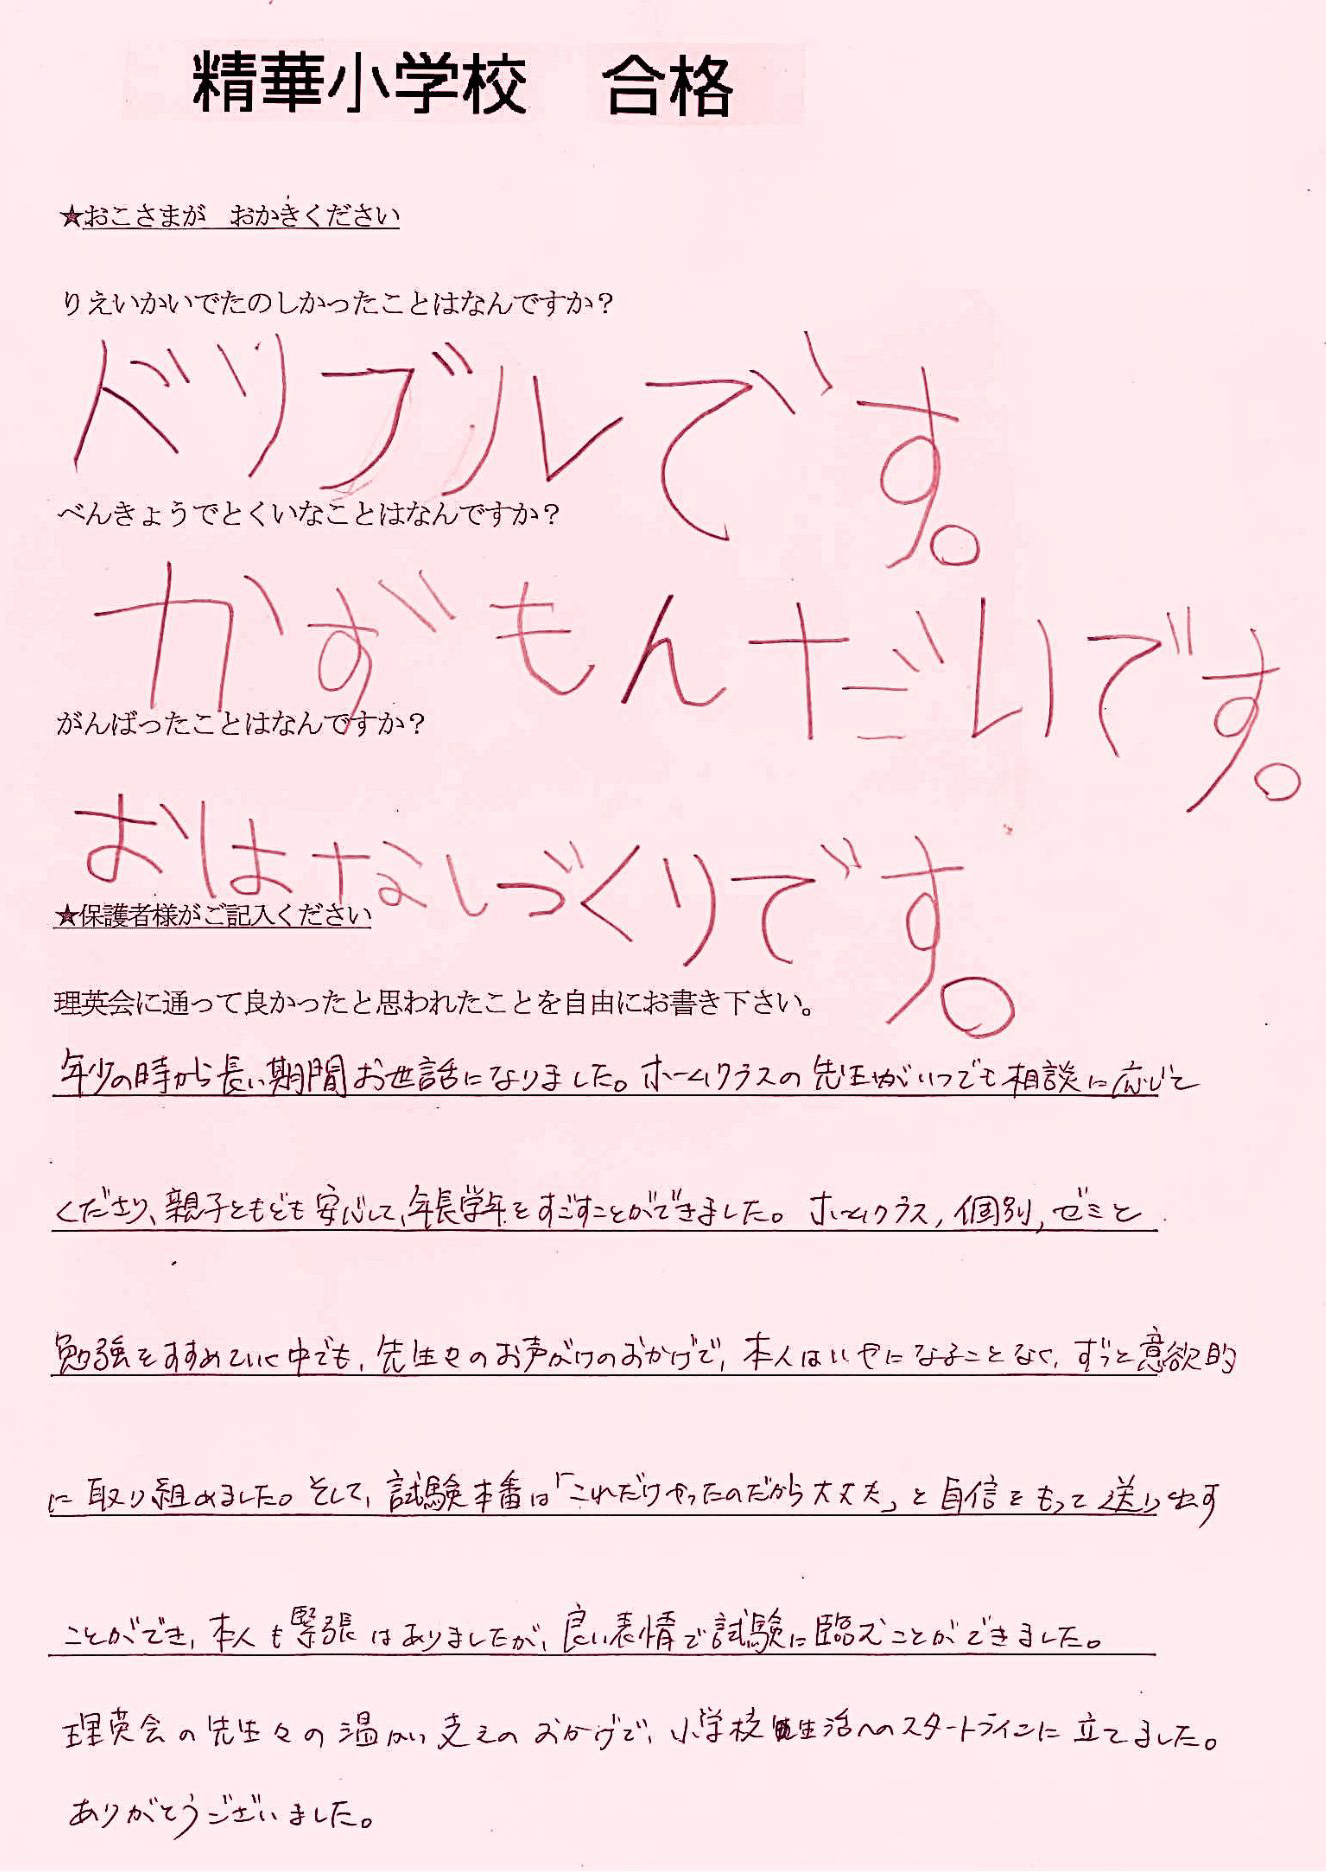 精華小学校　合格
★おこさまが　おかきください
りえいかいでたのしかったことはなんですか？
ドリブルです。
べんきょうでとくいなことはなんですか？
かずもんだいです。
がんばったことはなんですか？
おはなしづくりです。
★保護者様がご記入ください
理英会に通って良かったと思われたことを自由にお書き下さい。
年少の時から長い期間お世話になりました。ホームクラスの先生がいつでも相談に応じて
くださり、親子ともども安心して、年長学年をすごすことができました。ホームクラス, 個別, ゼミと
勉強をすすめていく中でも、先生々のお声がけのおかげで、本人はいやになることなく、ずっと意欲的
に取り組めました。そして、試験本番は「これだけやったのだから大丈夫」と自信をもって送り出す
ことができ、本人も緊張はありましたが、良い表情で試験に臨むことができました。
理英会の先生々の温かい支えのおかげで、小学校生活へのスタートラインに立てました。
ありがとうございました。